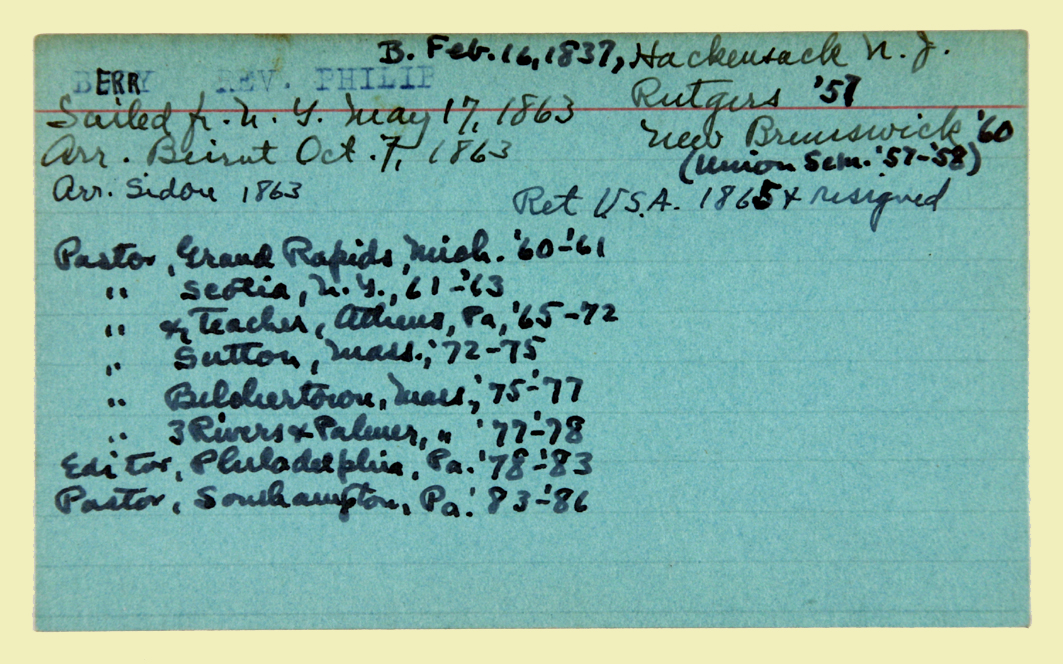 B. Feb. 16, 1837, Hackensack N. J.
BERRY REV. PHILIP
Rutgers '57
Sailed fr. N. Y. May 17, 1863
New Brunswick '60
Arr. Beirut Oct. 7, 1863
(Union Sem. '57-'58)
Arr. Sidon 1863
Ret U.S.A. 1865 & resigned
Pastor, Grand Rapids, Mich. '60-'61
" Scotia, N. Y., 61-'63
" & Teacher, Athens, Pa, '65-72
" Sutton, Mass., '72-75
" Belchertown, Mass., '75-'77
" 3 Rivers & Palmer, " '77-'78
Editor, Philadelphia, Pa. '78-'83
Pastor, Southampton, Pa. '83-'86